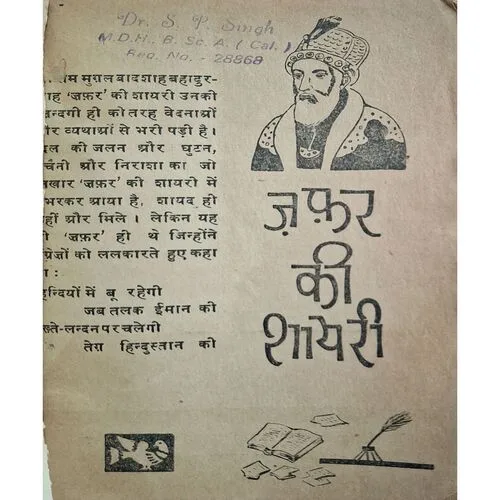 Dr. S. P. Singh
M.D.H., B. Sc. A. (Cal.)
Reg. No. - 28868
म मुग़ल बादशाह बहादुर-
ाह 'ज़फ़र' की शायरी उनकी
न्दगी ही की तरह वेदनाओं
र व्यथाओं से भरी पड़ी है।
ल की जलन और घुटन,
चैनी और निराशा का जो
खार 'ज़फ़र' की शायरी में
भरकर आया है, शायद ही
हीं और मिले। लेकिन यह
ी 'ज़फ़र' ही थे जिन्होंने
ग्रेजों को ललकारते हुए कहा
ा :
न्दियों में बू रहेगी
जब तलक ईमान की
ख़्ते-लन्दन पर चलेगी
तेग़ हिन्दुस्तान की
ज़फ़र
की
शायरी